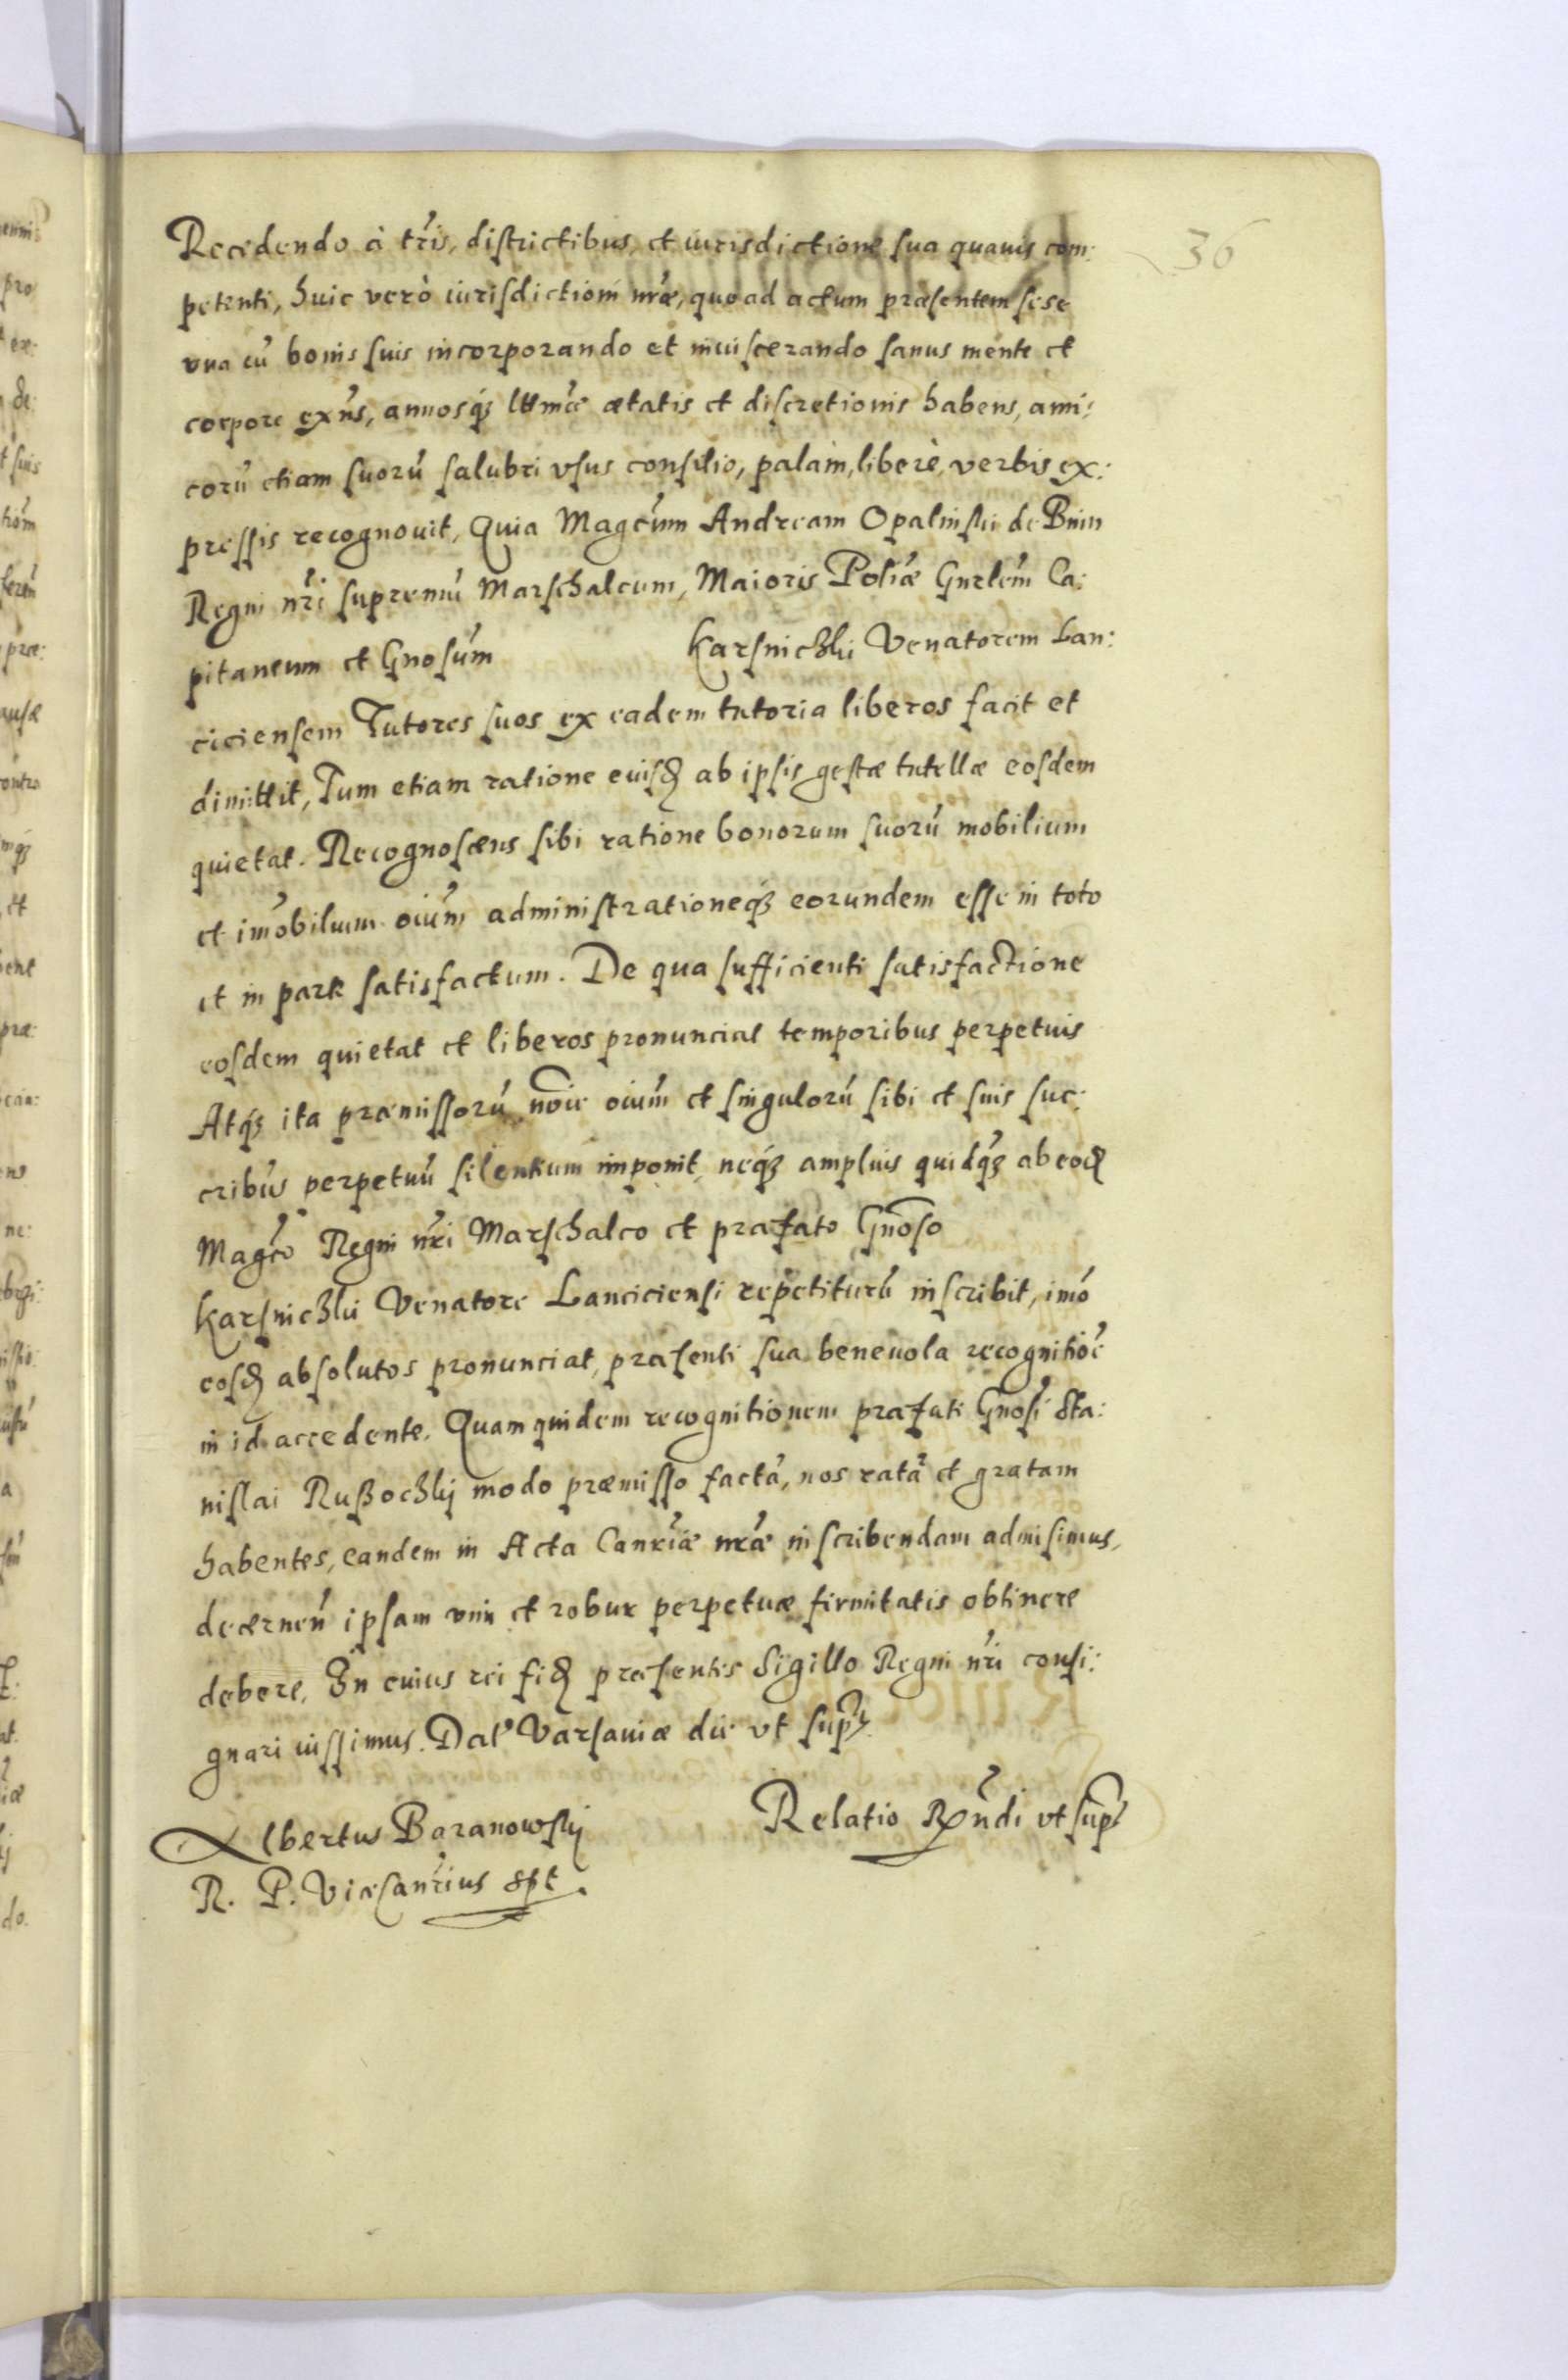 36
Recedendo à tr̃is, districtibus, et iurisdictione sua quauis com:
petenti, huic verò iurisdictioni nr̃æ, quoad actum præsentem sese
vna cũ bonis suis incorporando et inuiscerando sanus mente et
corpore exñs, annosq́ꝫ lttm̃æ ætatis et discretionis habens, ami:
corũ etiam suorũ salubri vsus consilio, palàm, liberè, verbis ex:
pressis recognouit, Quia Magc̃um Andream Opalinski de Bnin
Regni nr̃i supremũ Marschalcum, Maioris Poliæ̃ Gnrlem̃ Ca:
pitaneum et Gnosum̃ Karsniczki Venatorem Lan:
ciciensem Tutores suos ex eadem tutoria liberos facit et
dimittit, Tum etiam ratione euisꝺ ab ipsis gestæ tutellæ eosdem
quietat. Recognoscens sibi ratione bonorum suorũ mobilium
et imõbilium oiũm administrationeq́ꝫ eorundem esse in toto
et in parte satisfactum. De qua sufficienti satisfactione
eosdem quietat et liberos pronunciat temporibus perpetuis
Atq́ꝫ ita præmissorũ noĩe oiũm et singulorũ sibi et suis suc:
cribũs perpetuũ silentium imponit, neq́ꝫ amplius quidq́ꝫ ab eoꝺ
Magc̃o Regni nr̃i Marschalco et præfato Gnoso
Karsniczki Venatore Lanciciensi repetiturũ inscribit, imõ
eosꝺ absolutos pronunciat, præsenti sua beneuola recognitiõe
in id accedente. Quam quidem recognitionem præfati Gnosi Sta:
nislai Rußoczkij modo præmisso factã, nos ratã et gratam
habentes, eandem in Acta Canr̃iæ nr̃æ inscribendam admisimus,
decernen̄ ipsam vim et robur perpetuæ firmitatis obtinere
debere. In cuius rei fiꝺ præsentis Sigillo Regni nr̃i consi:
gnari iussimus. Dat' Varsauiæ die vt sup̃.
Relatio Rñdi vt sup̃
Albertus Baranowskij
R. P. Vicecanr̃ius spt